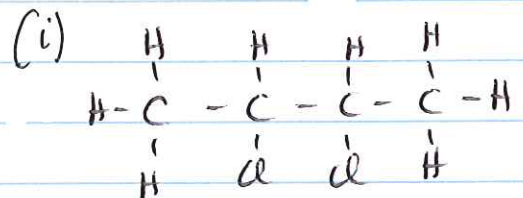 (i) H H H H
H - C - C - C - C - H
H Cl Cl H